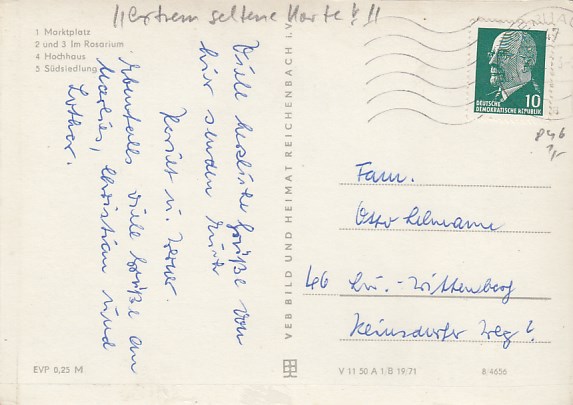 !!Extrem seltene Karte!!!
1 Marktplatz
2 und 3 Im Rosarium
4 Hochhaus
5 Südsiedlung
Viele herzliche Grüße von
hier senden Euch
Kerstin u. Werner.
Ebenfalls viele Grüße an
Marlies, Christian und
Lothar.
VEB BILD UND HEIMAT REICHENBACH I. V.
10
DEUTSCHE
DEMOKRATISCHE REPUBLIK
846
Fam.
Otto Lehmann
46 Lu.-Wittenberg
Reinsdorfer Weg 2
EVP 0,25 M
V 11 50 A 1/B 19/71
8/4656